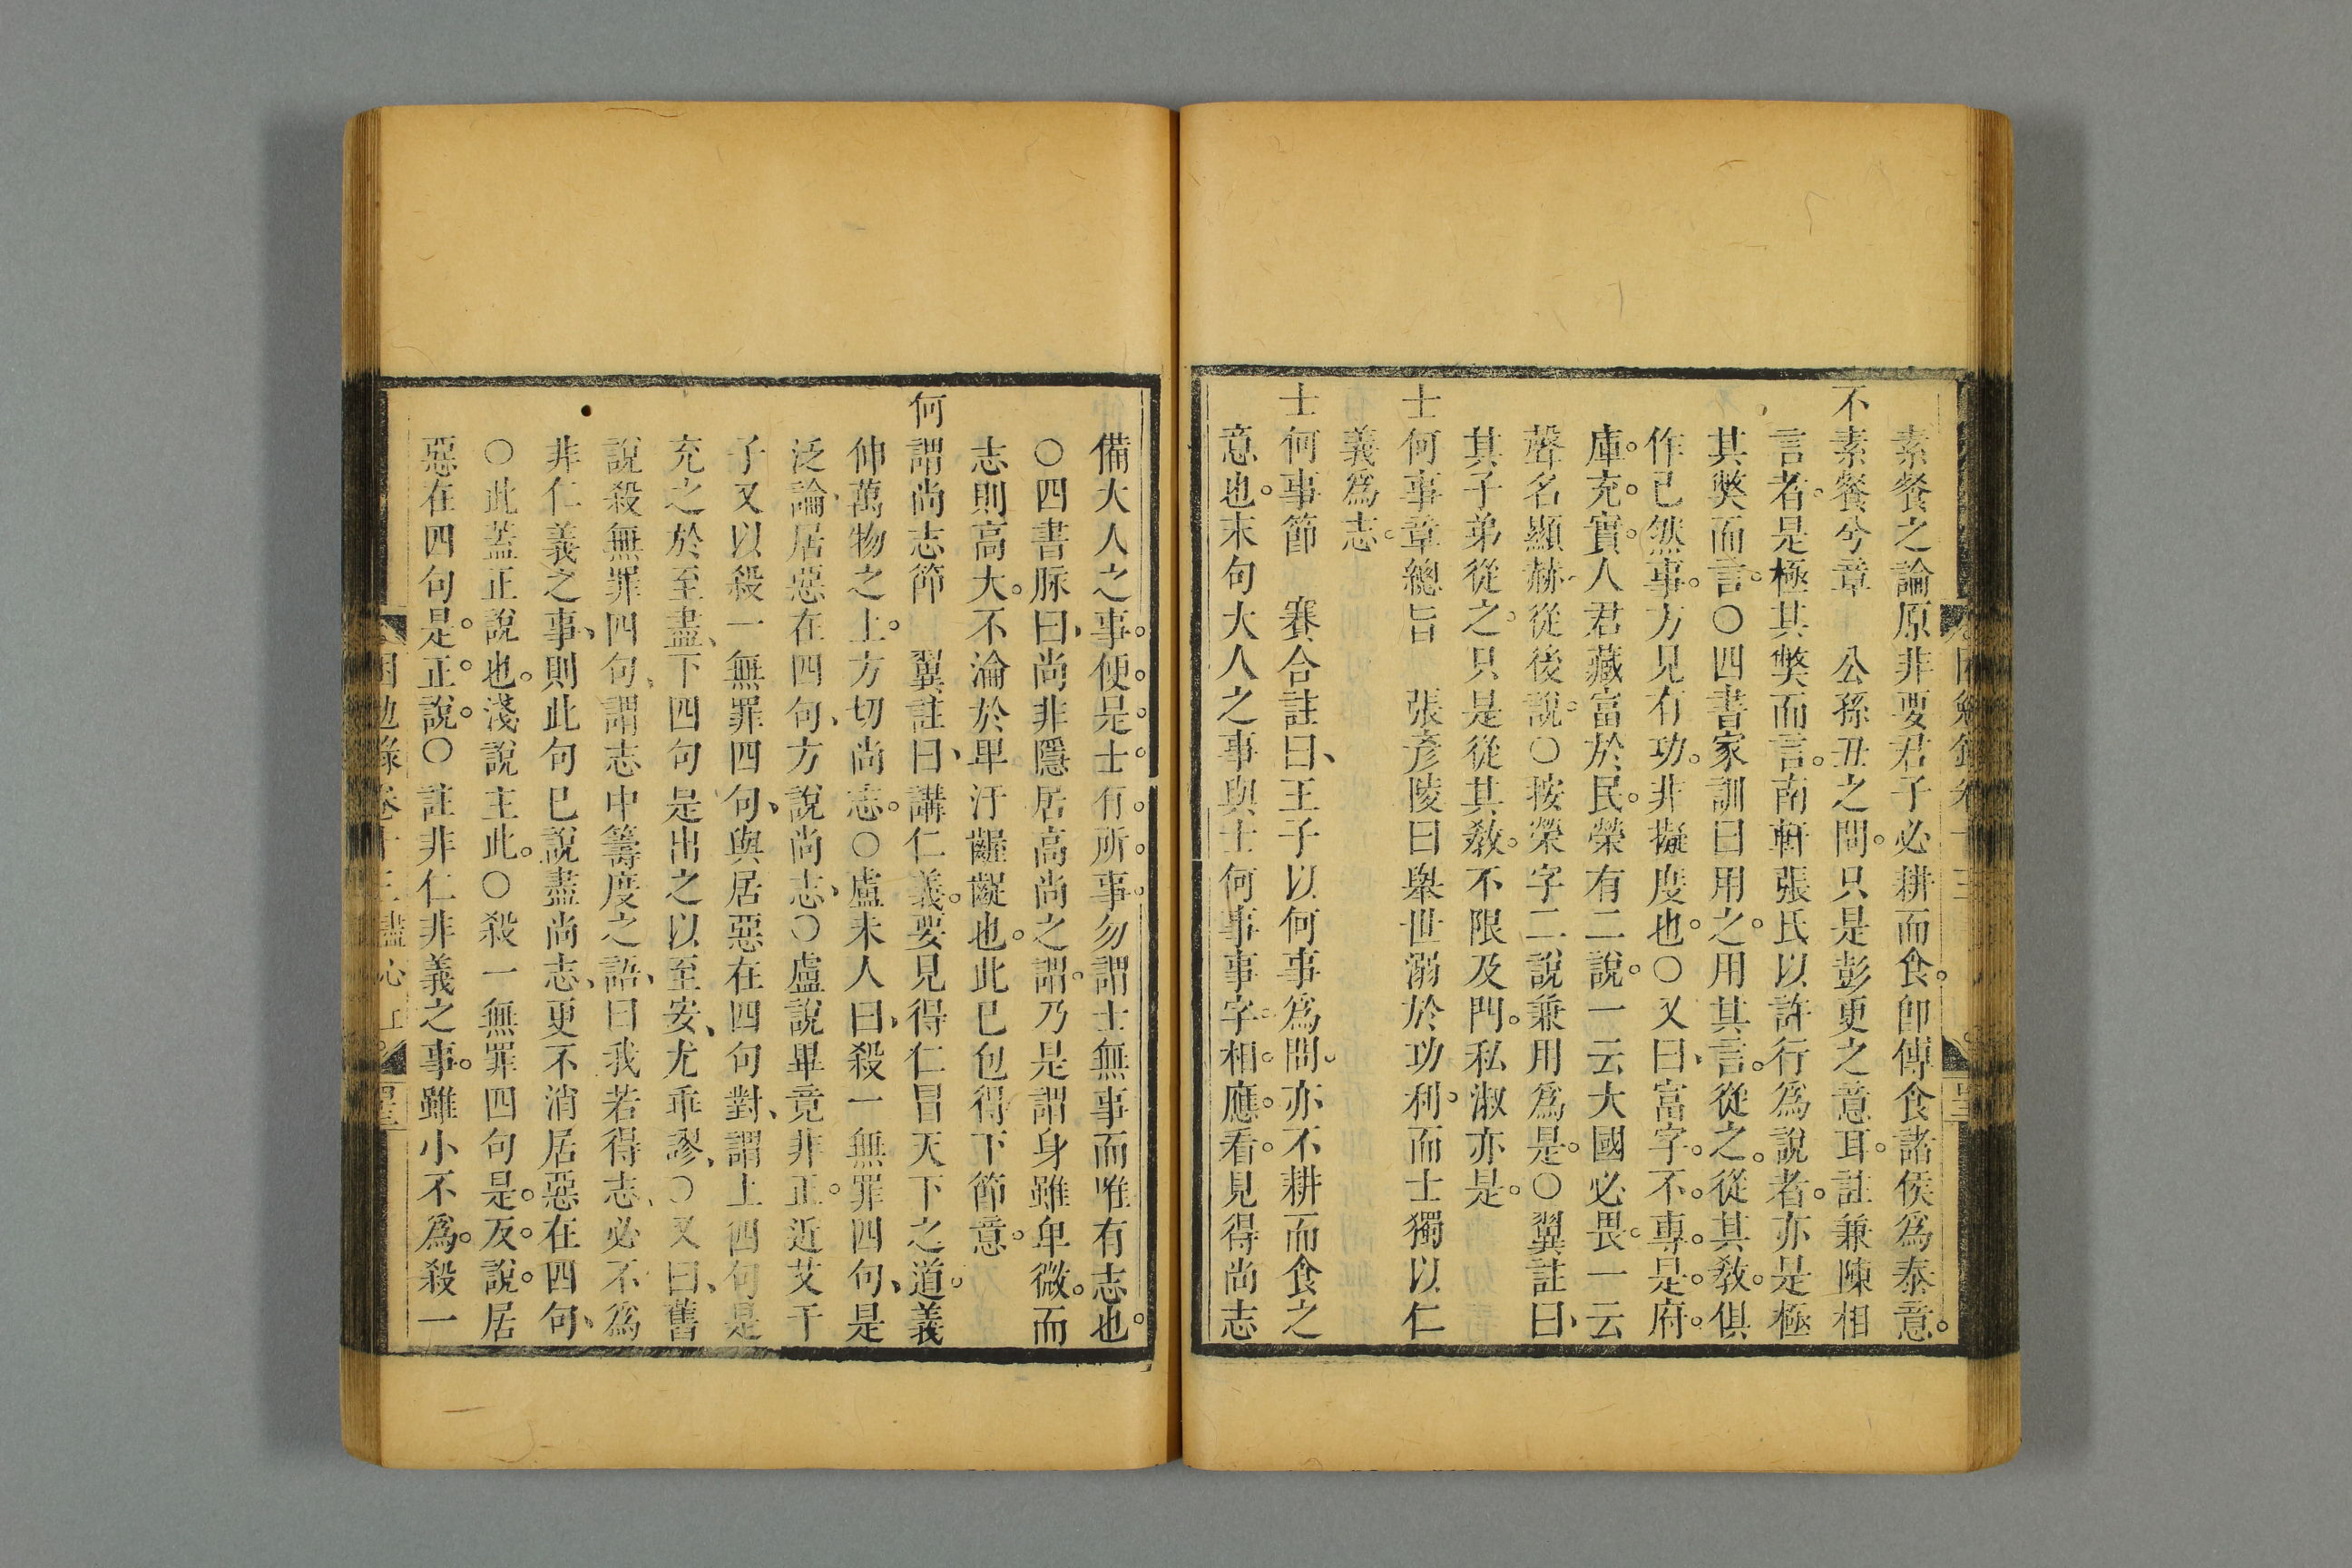 素餐之論原非要君子必耕而食。卽傳食諸侯爲泰意。
不素餐兮章　公孫丑之問。只是彭更之意耳。註兼陳相
言者。是極其弊而言。南軒張氏以許行爲說者。亦是極
其弊而言。○四書家訓曰用之。用其言。從之。從其敎。俱
作已然事。方見有功。非擬度也。○又曰、富字。不。專。是。府。
庫。充。實。人君藏富於民。榮有二說。一云大國必畏。一云
聲名顯赫。從後說。○按榮字二說兼用爲是。○翼註曰、
其子弟從之。只是從其敎。不限及門。私淑亦是。
士何事章總旨　張彥陵曰舉世溺於功利。而士獨以仁
義爲志。
士何事節　賽合註曰、王子以何事爲問。亦不耕而食之
意也。末句大人之事與士何事事字。相。應。看。見得尚志
備大人之事。便。是。士。有。所。事。勿謂士無事而唯有志也。
○四書脉曰、尚非隱居高尚之謂。乃是謂身雖卑微。而
志則高大。不淪於卑汙齷齪也。此已包得下節意。
何謂尚志節　翼註曰、講仁義。要見得仁冒天下之道。義
伸萬物之上。方切尚志。○盧未人曰、殺一無罪四句、是
泛論、居惡在四句、方說尚志、○盧說畢竟非正。近艾千
子又以殺一無罪四句、與居惡在四句對、謂上四句是
充之於至盡、下四句是出之以至安、尤乖謬、○又曰、舊
說殺無罪四句、謂志中籌度之語、曰我若得志、必不爲
非仁義之事、則此句已說盡尚志、更不消居惡在四句、
○此蓋正說也。淺說主此。○殺一無罪四句是。反。說。居
惡在四句是。正。說。○註非仁非義之事。雖小不爲。殺一
困勉錄卷十三 盡心上